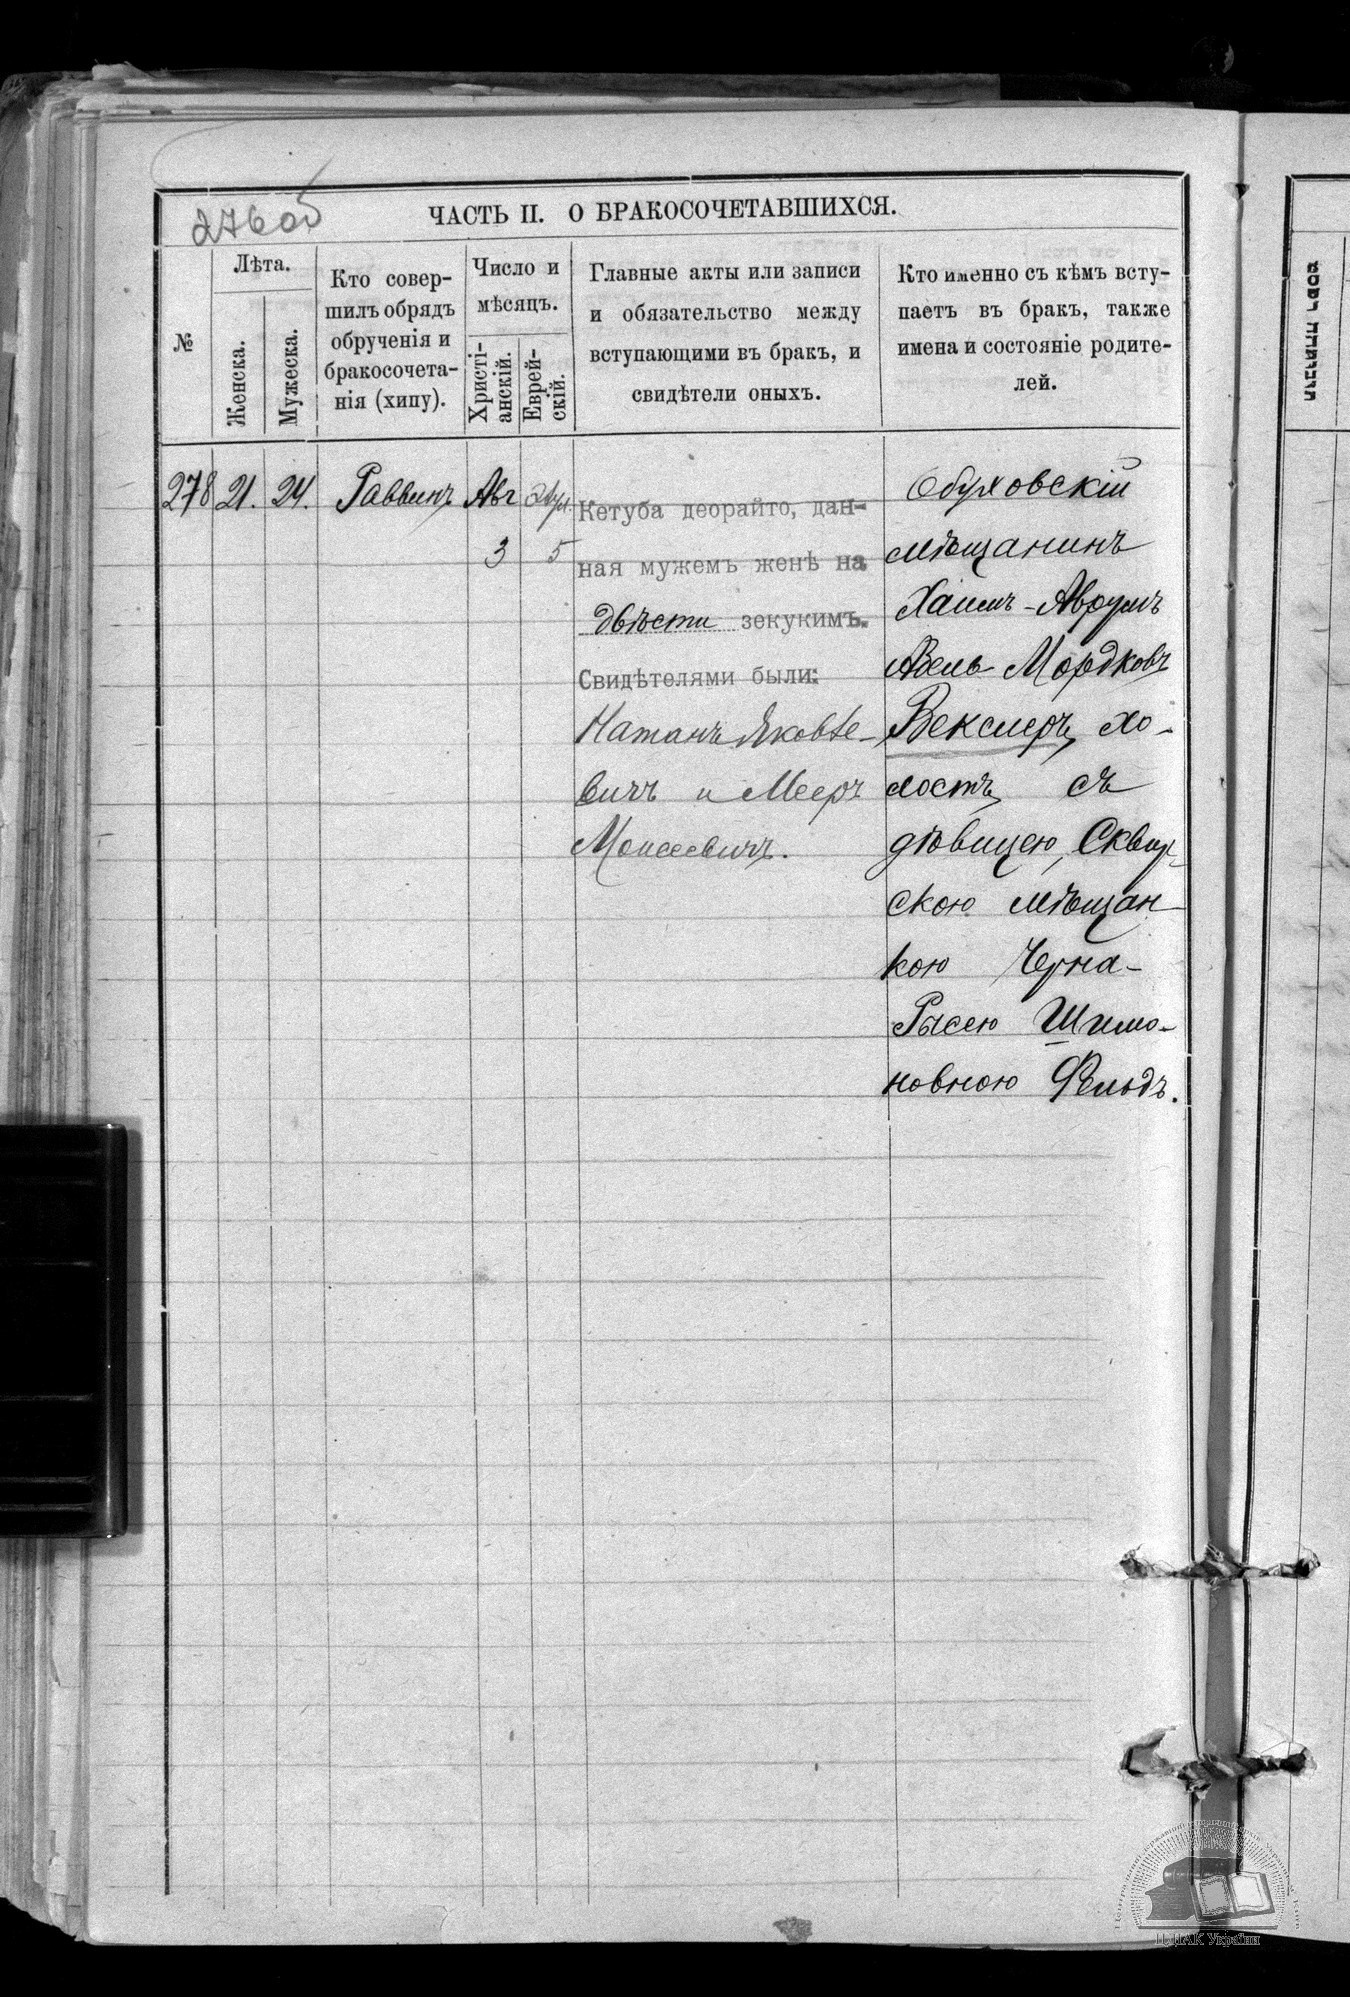 276об
ЧАСТЬ II. О БРАКОСОЧЕТАВШИХСЯ.
№
Лѣта.
Женска.
Мужеска.
Кто совер-
шилъ обрядъ
обрученія и
бракосочета-
нія (хипу).
Число и
мѣсяцъ.
Христі-
анскій.
Еврей-
скій.
Главные акты или записи
и обязательство между
вступающими въ бракъ, и
свидѣтели оныхъ.
Кто именно съ кѣмъ всту-
паетъ въ бракъ, также
имена и состояніе родите-
лей.
278
21.
24.
Раввинъ
Авг
3
5
Кетуба деорайто, дан-
ная мужемъ женѣ на
двѣсти зекукимъ.
Свидѣтелями были:
Натанъ Яковле-
вичъ и Мееръ
Моисеевичъ.
Обуховскій
мѣщанинъ
Хаимъ-Аврумъ
Мордковъ
Векслеръ, хо-
лостъ, съ
дѣвицею, Сквир-
скою мѣщан-
кою Черна-
Рысею Шимо-
новною Фельдъ.
ЦДІАК України